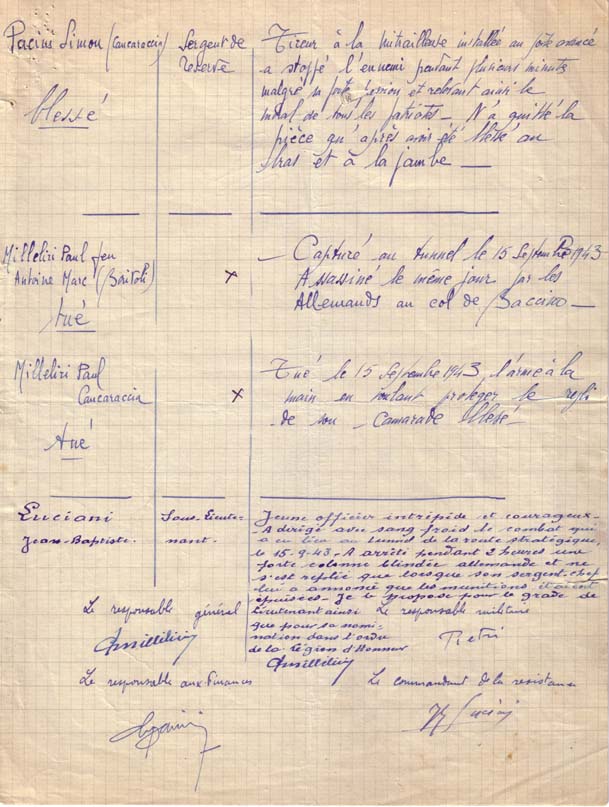 Pacius Simon (Caucaraccia)
blessé
Sergent de
reserve
Tireur à la mitrailleuse installée au poste avancé
a stoppé l'ennemi pendant plusieurs minutes
malgré sa forte et relevant ainsi le
moral de tous les patriotes _ N'a quitté la
pièce qu'après avoir été blessé au
bras et à la jambe _
Milleliri Paul feu
Antoine Marc (Bartoli)
tué
x
_ Capturé au tunnel le 15 Septembre 1943
Assassiné le même jour par les
Allemands au col de Baccino _
Milleliri Paul
Caucaraccia
tué
x
Tué le 15 Septembre 1943 l'arme à la
main en voulant proteger le repli
de son Camarade blessé _
Luciani
Jean-Baptiste.
Sous-Lieute-
nant.
Jeune officier intrépide et courageux _
A dirigé avec sang froid le combat qui
a eu lieu au tunnel de la route stratégique,
le 15-9-43 _ A arrêté pendant 2 heures une
forte colonne blindée allemande et ne
s'est replié que lorsque son sergent-chef
lui a annoncé que les munitions étaient
épuisées _ Je le propose pour le grade de
Lieutenant ainsi
que pour sa nomi-
nation dans l'ordre
de la Légion d'Honneur
Milleliri
Le responsable général
Milleliri
Le responsable militaire
Pietri
Le responsable aux Finances
Le commandant de la resistance
Luciani